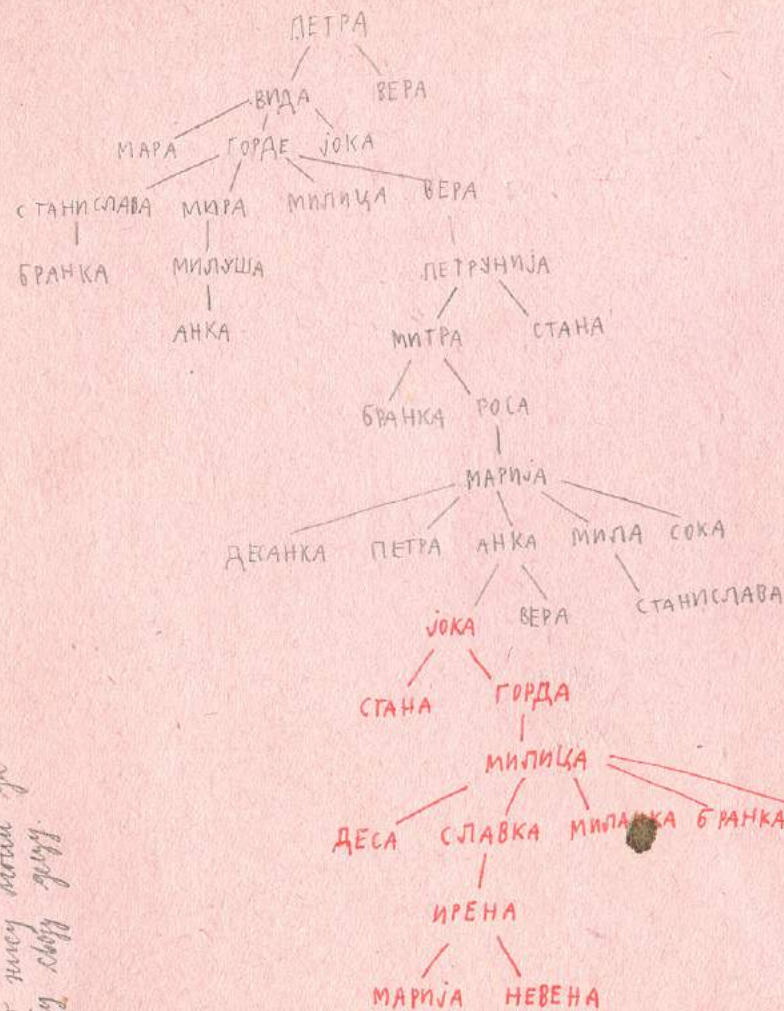 ПЕТРА
ВИДА ВЕРА
МАРА ГОРДЕ ЈОКА
СТАНИСЛАВА МИРА МИЛИЦА ВЕРА
БРАНКА МИЛУША ПЕТРУНИЈА
АНКА МИТРА СТАНА
БРАНКА РОСА
МАРИЈА
ДЕСАНКА ПЕТРА АНКА МИЛА СОКА
ЈОКА ВЕРА СТАНИСЛАВА
СТАНА ГОРДА
МИЛИЦА
ДЕСА СЛАВКА МИЛАНКА БРАНКА
ИРЕНА
МАРИЈА НЕВЕНА
нису
своју децу.